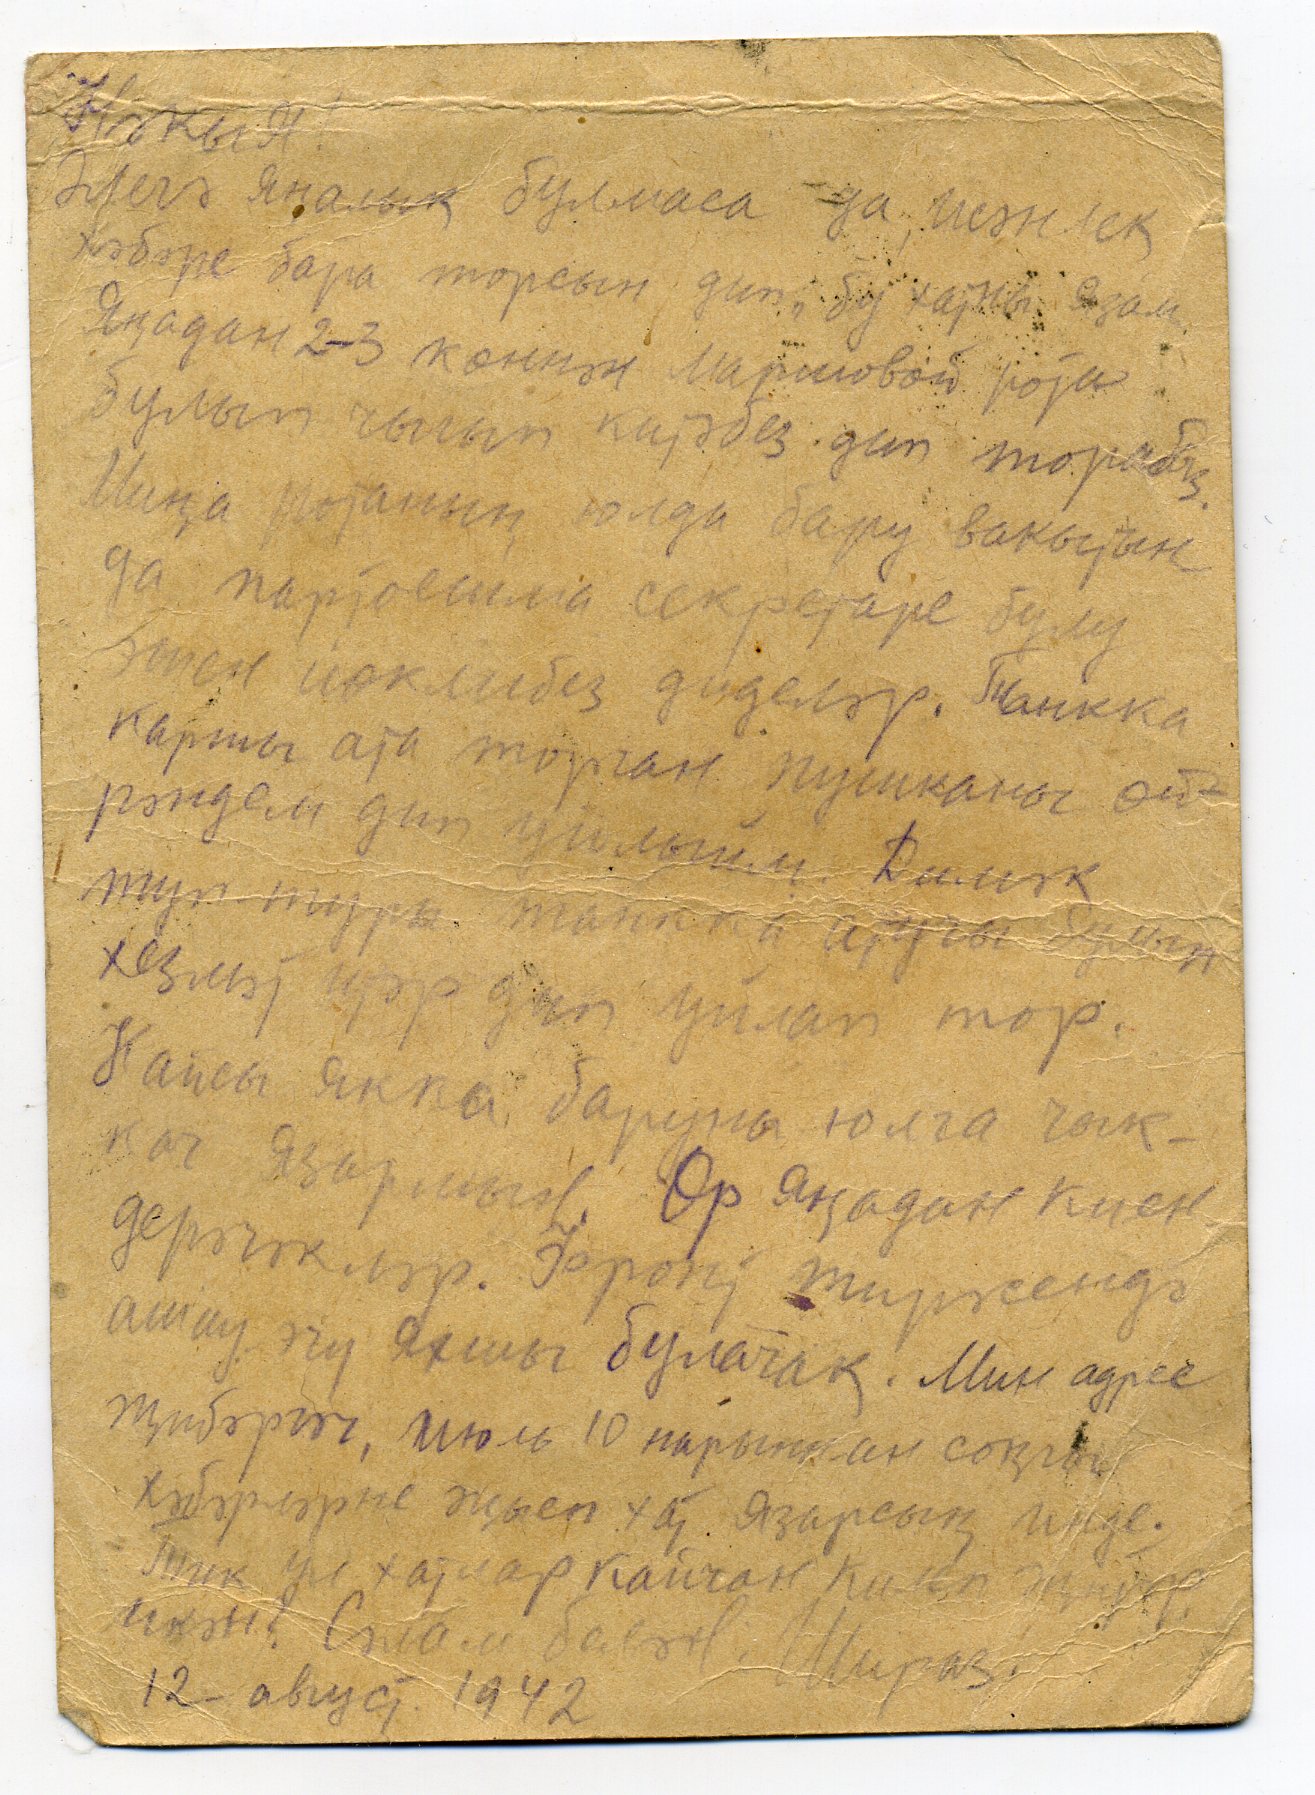 Нәкыя!
Әлегә яңалык булмаса да, исәнлек
хәбәре бара торсын дип, бу хатны язам.
Яңадан 2-3 көннән Маршовой рота
булып чыгып китәбез дип торабыз.
Миңа ротаның юлда бару вакытын
да партоешма секретаре булу
эшен йөклибез диделәр. Танкка
каршы ата торган пушканы өй-
рәндем дип уйлыйм. Димәк
туп-туры танкка атучы булып
хезмәт итәр дип уйлап тор.
Кайсы якка баруны юлга чык-
кач язармын. Өр яңадан киен
дерәчәкләр. Фронт тирәсендә
ашау эчү яхшы булачак. Мин адрес
җибәргәч, июль 10 нарыннан соңгы
хәбәрләрне җыеп хат язарсың инде.
Тик ул хатлар кайчан килеп җитәр
икән! Сәлам белән: Шираз.
12 август. 1942